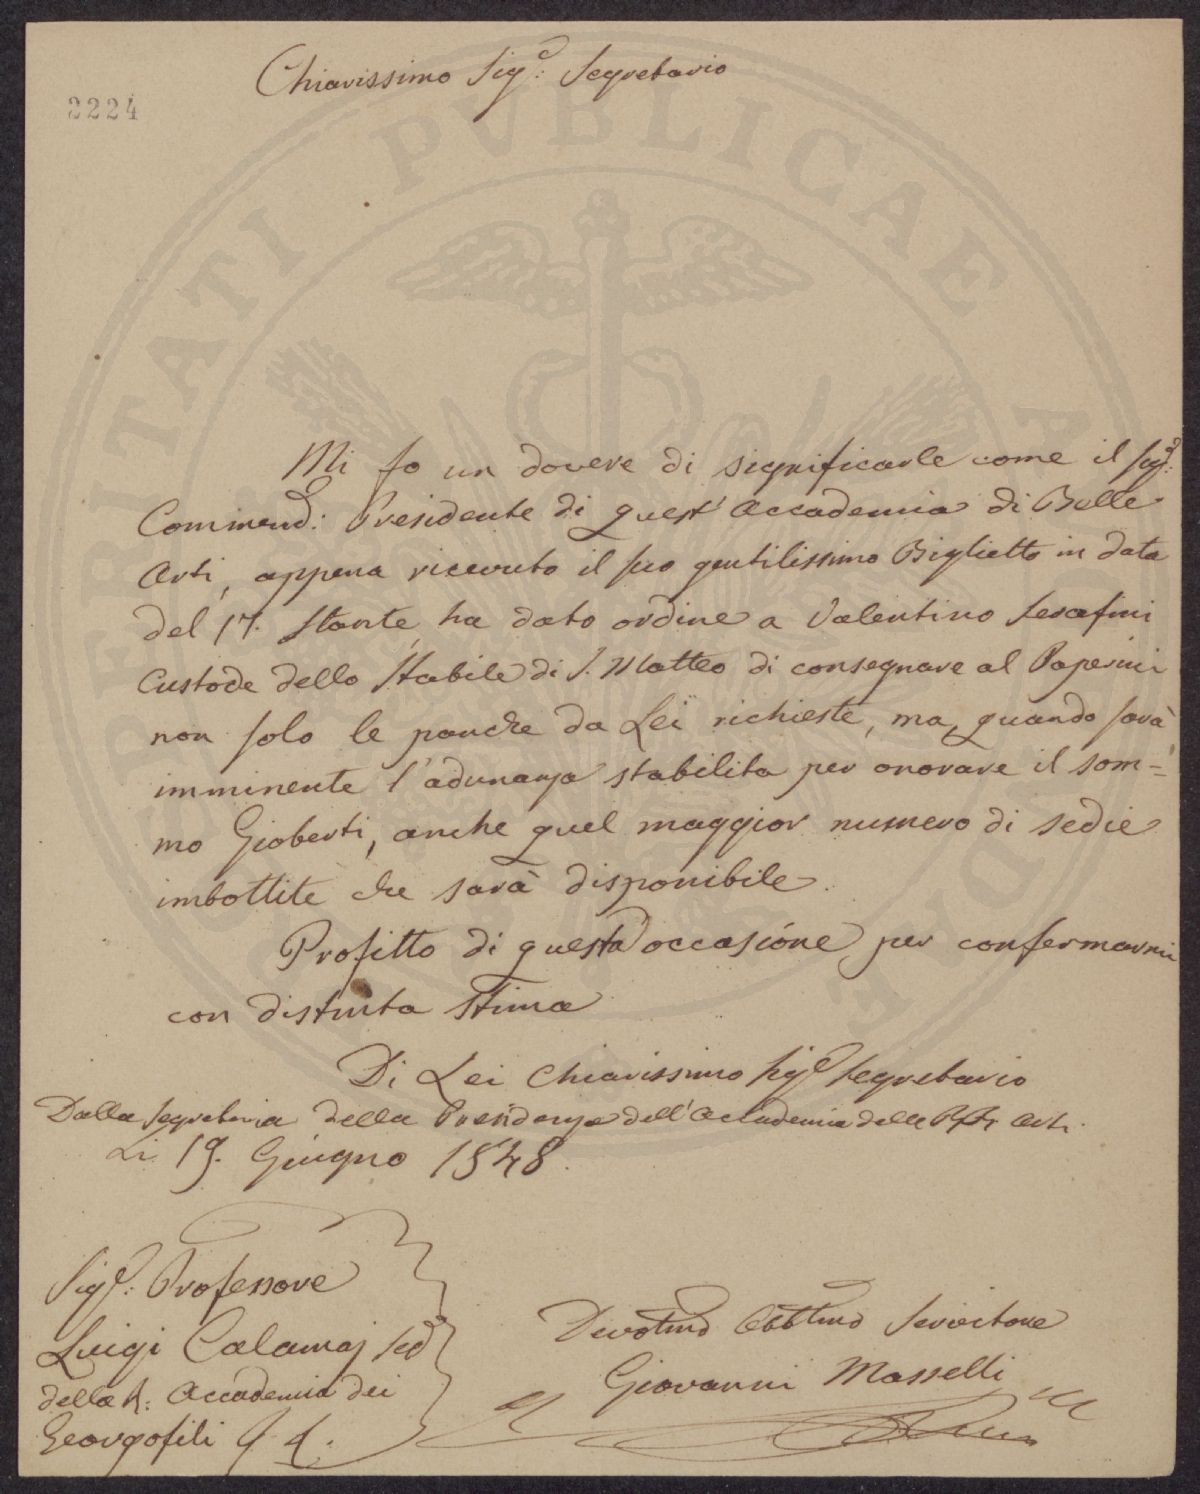 2224
Chiarissimo Sig.e: Segretario
Mi fo un dovere di significarle come il Sig.e:
Commend.: Presidente di quest' Accademia di Belle
Arti, appena ricevuto il suo gentilissimo Biglietto in data
del 17. Stante, ha dato ordine a Valentino Serafini
Custode dello Stabile di S. Matteo di consegnare al Paperini
non solo le panche da Lei richieste, ma, quando sarà
imminente l'adunanza stabilita per onorare il som=
mo Gioberti, anche quel maggior numero di sedie
imbottite che sarà disponibile.
Profitto di questa occasione per confermarmi
con distinta stima
Di Lei Chiarissimo Sig.e Segretario
Dalla Segreteria della Presidenza dell' Accademia delle Arti.
Li 19. Giugno 1848.
Sig.e: Professore
Luigi Calamaj
della R: Accademia dei
Georgofili
Devotmo Obbtmo Servitore
Giovanni Masselli
PVBLICAE